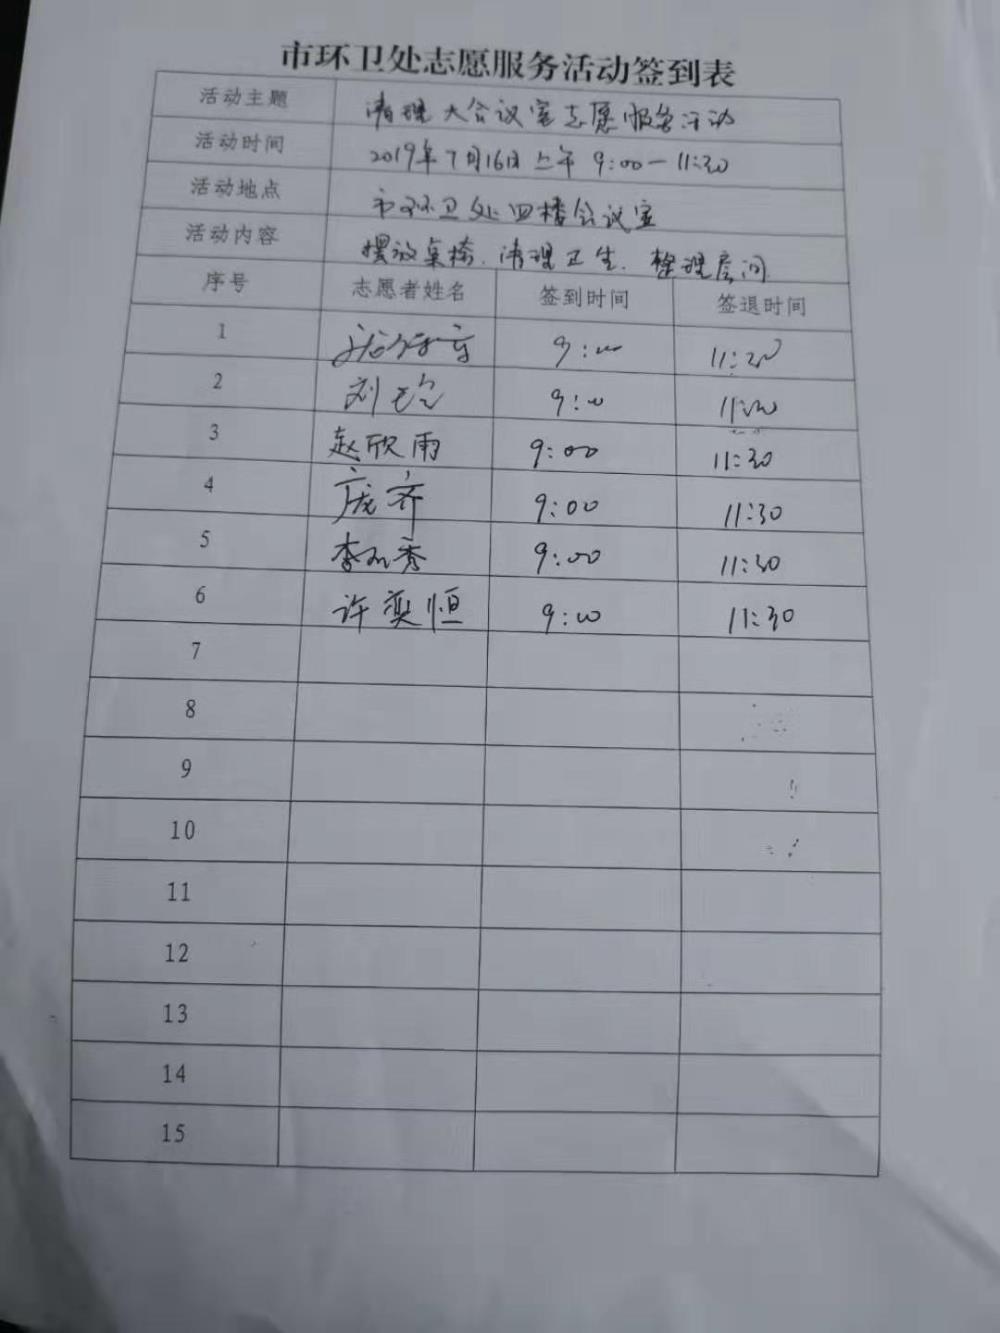 市环卫处志愿服务活动签到表
活动主题 清理大会议室志愿服务活动
活动时间 2019年7月16日上午 9:00-11:30
活动地点 市环卫处四楼会议室
活动内容 摆放桌椅.清理卫生.整理房间
序号 志愿者姓名 签到时间 签退时间
1 9:00 11:30
2 刘 9:00 11:30
3 赵欣雨 9:00 11:30
4 庞齐 9:00 11:30
5 李 秀 9:00 11:30
6 许奕恒 9:00 11:30
7
8
9
10
11
12
13
14
15